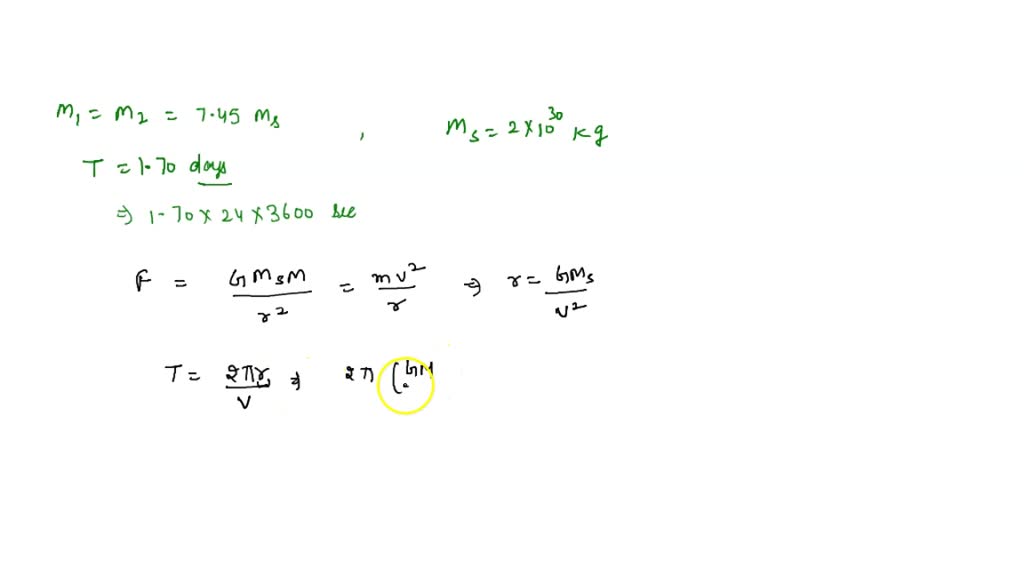 M₁ = M₂ = 7.45 Ms , Ms = 2 × 10³⁰ kg
T = 1.70 days
⇒ 1.70 × 24 × 3600 sec
F = GMsM / r² = mv² / r ⇒ r = GMs / v²
T = 2πr / V ⇒ 2π (GM